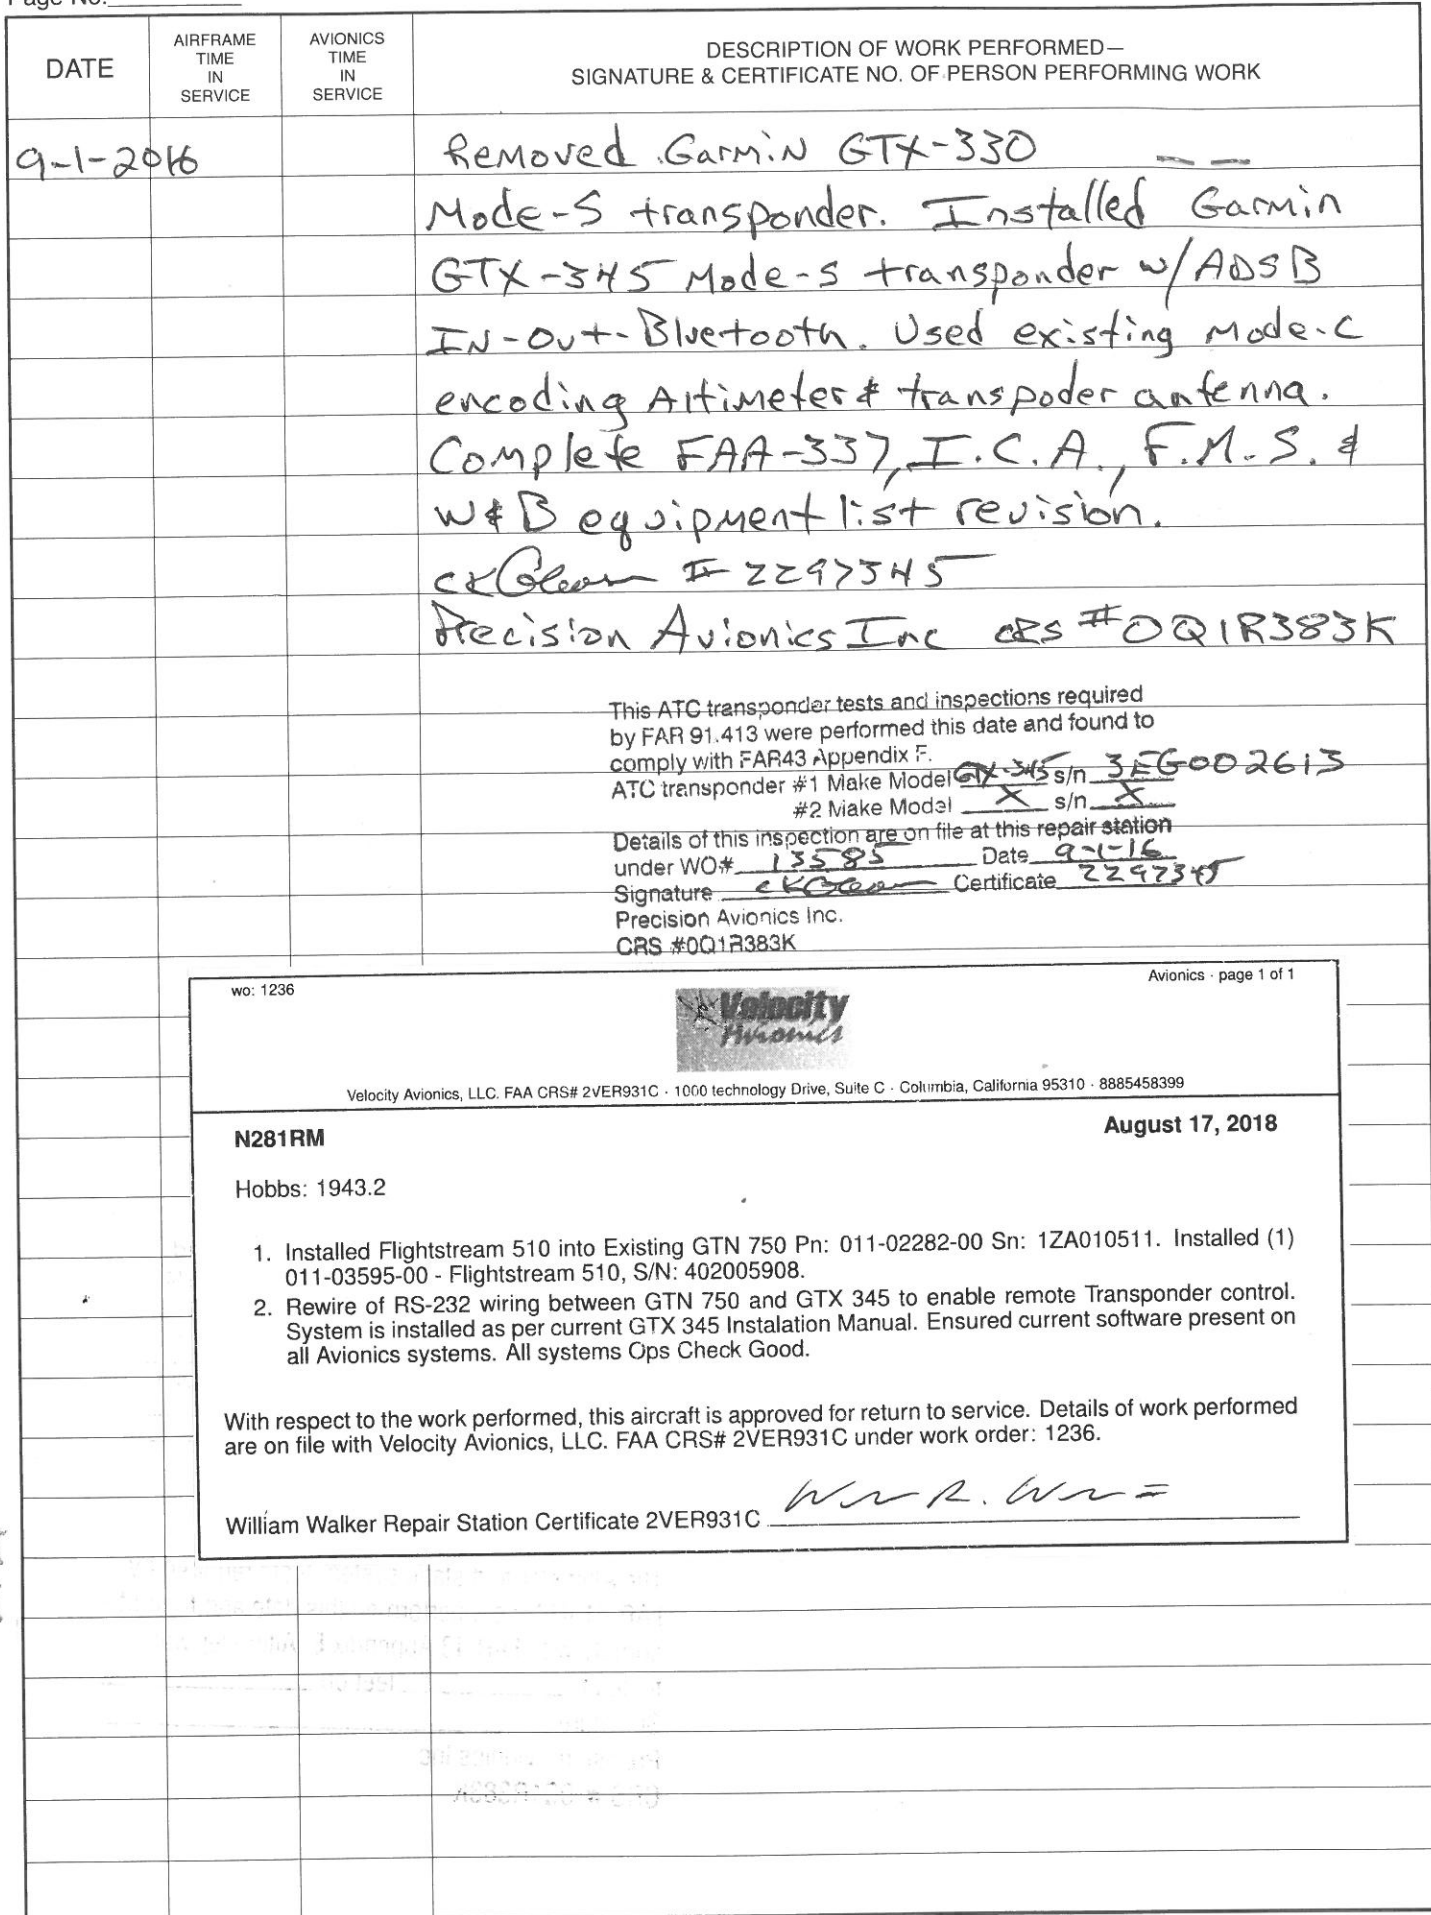 Page No.
DATE
AIRFRAME
TIME
IN
SERVICE
AVIONICS
TIME
IN
SERVICE
DESCRIPTION OF WORK PERFORMED—
SIGNATURE & CERTIFICATE NO. OF PERSON PERFORMING WORK
9-1-2016
Removed Garmin GTX-330
Mode-S transponder. Installed Garmin
GTX-345 Mode-S transponder w/ADSB
IN-Out-Bluetooth. Used existing Mode-C
encoding Altimeter & transpoder antenna.
Complete FAA-337, I.C.A., F.M.S. &
W&B equipment list revision.
# 2297345
Precision Avionics Inc CRS #0Q1R383K
This ATC transponder tests and inspections required
by FAR 91.413 were performed this date and found to
comply with FAR43 Appendix F.
ATC transponder #1 Make Model GTX-345 s/n 3EG002613
#2 Make Model X s/n X
Details of this inspection are on file at this repair station
under WO# 13585 Date 9-1-16
Signature Certificate 2297345
Precision Avionics Inc.
CRS #0Q1R383K
wo: 1236
Avionics · page 1 of 1
Velocity
Avionics
Velocity Avionics, LLC. FAA CRS# 2VER931C · 1000 technology Drive, Suite C · Columbia, California 95310 · 8885458399
N281RM
August 17, 2018
Hobbs: 1943.2
1. Installed Flightstream 510 into Existing GTN 750 Pn: 011-02282-00 Sn: 1ZA010511. Installed (1)
011-03595-00 - Flightstream 510, S/N: 402005908.
2. Rewire of RS-232 wiring between GTN 750 and GTX 345 to enable remote Transponder control.
System is installed as per current GTX 345 Instalation Manual. Ensured current software present on
all Avionics systems. All systems Ops Check Good.
With respect to the work performed, this aircraft is approved for return to service. Details of work performed
are on file with Velocity Avionics, LLC. FAA CRS# 2VER931C under work order: 1236.
William Walker Repair Station Certificate 2VER931C